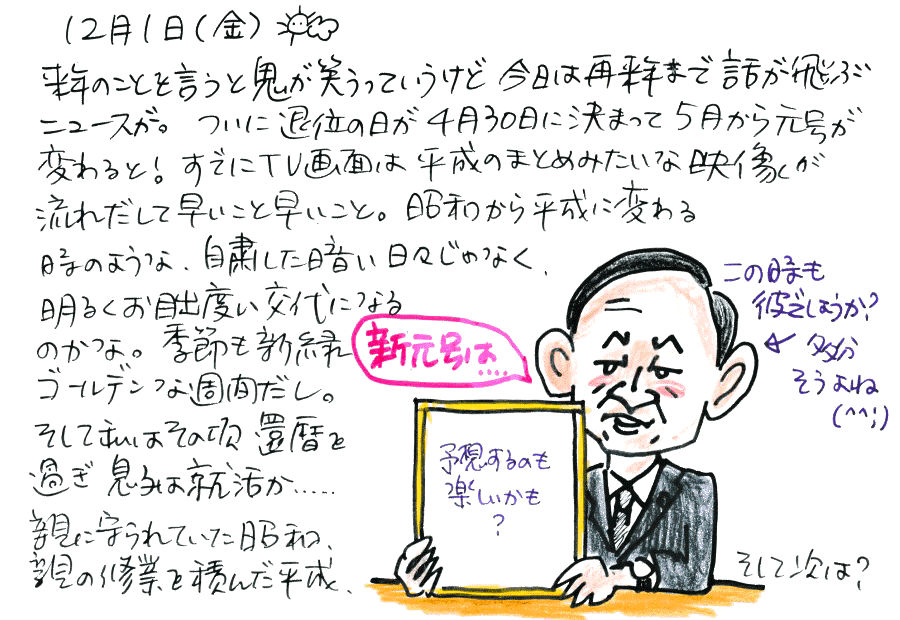 12月1日(金)
来年のことを言うと鬼が笑うっていうけど 今日は再来年まで話が飛ぶ
ニュースが。 ついに退位の日が4月30日に決まって5月から元号が
変わると! すでにTV画面は平成のまとめみたいな映像が
流れだして早いこと早いこと。昭和から平成に変わる
時のような、自粛した暗い日々じゃなく、
明るくお目出度い交代になる
のかな。季節も新緑
ゴールデンな週間だし。
そして私はその頃 還暦を
過ぎ 息子は就活か……
親に守られていた昭和、
親の修業を積んだ平成、
そして次は?
新元号は....
予想するのも
楽しいかも
?
この時も
彼でしょうか?
← 多分
そうよね
(^^;)